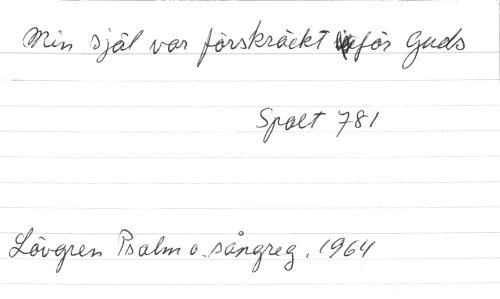 Min själ var förskräckt inför Guds
Spalt 781
Lövgren Psalm o. sångreg. 1964